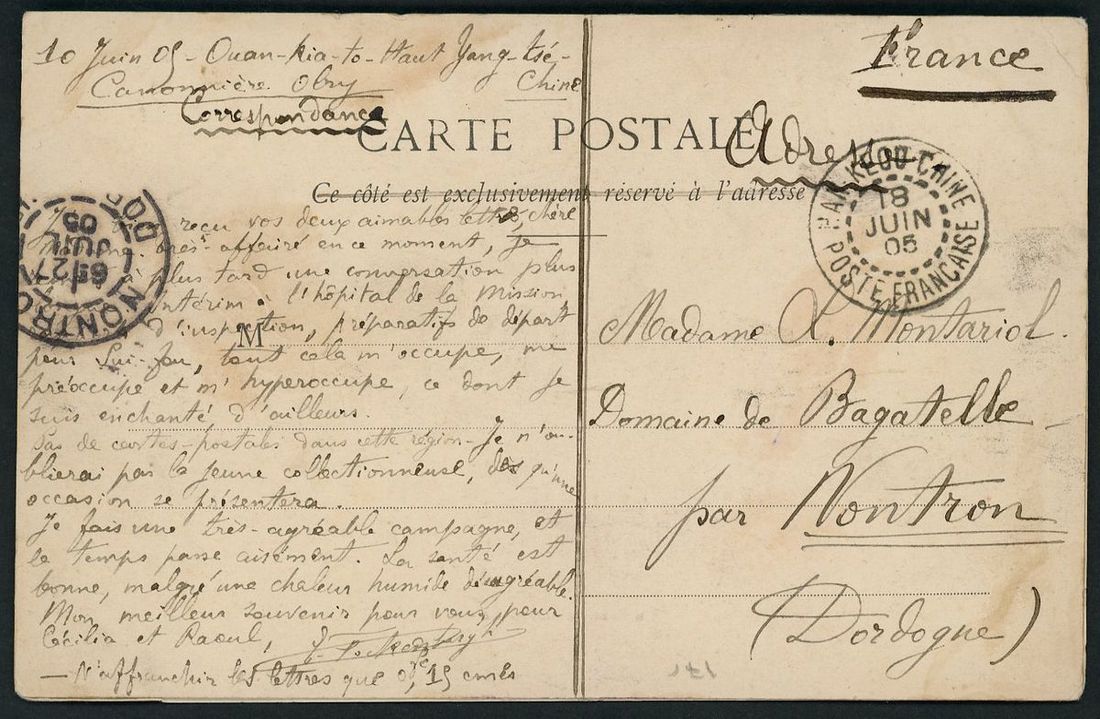 10 Juin 05 - Ouan-kia-to - Haut Yang-tsé,
Canonnière Olry Chine
Correspondance
France
CARTE POSTALE
Adresse
Ce côté est exclusivement réservé à l'adresse
HAN-KEOU-CHINE
18
JUIN
05
POSTE FRANÇAISE
NONTRON
27
JUIL
05
reçu vos deux aimables lettres, chère
très-affairé en ce moment, je
plus tard une conversation plus
intérim à l'hôpital de la Mission
d'inspection, préparatifs de départ
M
pour Sui-fou, tout cela m'occupe, me
préoccupe et m'hyperoccupe, ce dont je
suis enchanté d'ailleurs.
Pas de cartes-postales dans cette région - Je n'ou-
blierai pas la jeune collectionneuse, dès qu'une
occasion se présentera.
Je fais une très-agréable campagne, et
le temps passe aisément. La santé est
bonne, malgré une chaleur humide désagréable.
Mon meilleur souvenir pour vous, pour
Cécilia et Raoul,
- N'affranchir les lettres que 0f,15 cmes
Madame X. Montariol.
Domaine de Bagatelle
par Nontron
(Dordogne)